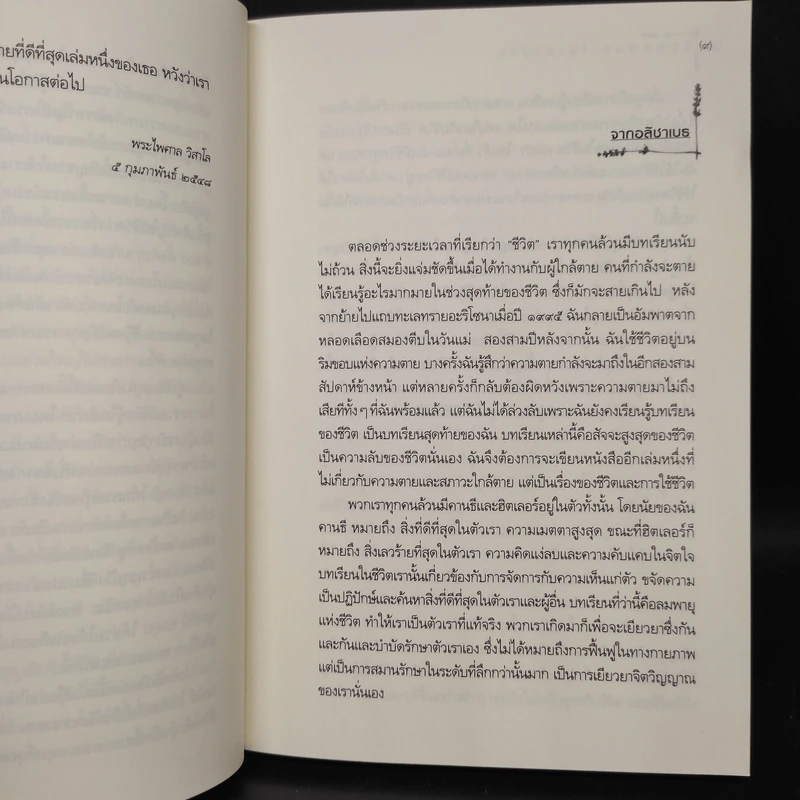 ายที่ดีที่สุดเล่มหนึ่งของเธอ หวังว่าเรา
นโอกาสต่อไป
พระไพศาล วิสาโล
๕ กุมภาพันธ์ ๒๕๔๘
(๙)
จากอลิซาเบธ
ตลอดช่วงระยะเวลาที่เรียกว่า "ชีวิต" เราทุกคนล้วนมีบทเรียนนับ
ไม่ถ้วน สิ่งนี้จะยิ่งแจ่มชัดขึ้นเมื่อได้ทำงานกับผู้ใกล้ตาย คนที่กำลังจะตาย
ได้เรียนรู้อะไรมากมายในช่วงสุดท้ายของชีวิต ซึ่งก็มักจะสายเกินไป หลัง
จากย้ายไปแถบทะเลทรายอะริโซนาเมื่อปี ๑๙๙๕ ฉันกลายเป็นอัมพาตจาก
หลอดเลือดสมองตีบในวันแม่ สองสามปีหลังจากนั้น ฉันใช้ชีวิตอยู่บน
ริมขอบแห่งความตาย บางครั้งฉันรู้สึกว่าความตายกำลังจะมาถึงในอีกสองสาม
สัปดาห์ข้างหน้า แต่หลายครั้งก็กลับต้องผิดหวังเพราะความตายมาไม่ถึง
เสียทีทั้งๆ ที่ฉันพร้อมแล้ว แต่ฉันไม่ได้ล่วงลับเพราะฉันยังคงเรียนรู้บทเรียน
ของชีวิต เป็นบทเรียนสุดท้ายของฉัน บทเรียนเหล่านี้คือสัจจะสูงสุดของชีวิต
เป็นความลับของชีวิตนั่นเอง ฉันจึงต้องการจะเขียนหนังสืออีกเล่มหนึ่งที่
ไม่เกี่ยวกับความตายและสภาวะใกล้ตาย แต่เป็นเรื่องของชีวิตและการใช้ชีวิต
พวกเราทุกคนล้วนมีคานธีและฮิตเลอร์อยู่ในตัวทั้งนั้น โดยนัยของฉัน
คานธี หมายถึง สิ่งที่ดีที่สุดในตัวเรา ความเมตตาสูงสุด ขณะที่ฮิตเลอร์ก็
หมายถึง สิ่งเลวร้ายที่สุดในตัวเรา ความคิดแง่ลบและความคับแคบในจิตใจ
บทเรียนในชีวิตเรานั้นเกี่ยวข้องกับการจัดการกับความเห็นแก่ตัว ขจัดความ
เป็นปฏิปักษ์และค้นหาสิ่งที่ดีที่สุดในตัวเราและผู้อื่น บทเรียนที่ว่านี้คือลมพายุ
แห่งชีวิต ทำให้เราเป็นตัวเราที่แท้จริง พวกเราเกิดมาก็เพื่อจะเยียวยาซึ่งกัน
และกันและบำบัดรักษาตัวเราเอง ซึ่งไม่ได้หมายถึงการฟื้นฟูในทางกายภาพ
แต่เป็นการสมานรักษาในระดับที่ลึกกว่านั้นมาก เป็นการเยียวยาจิตวิญญาณ
ของเรานั่นเอง